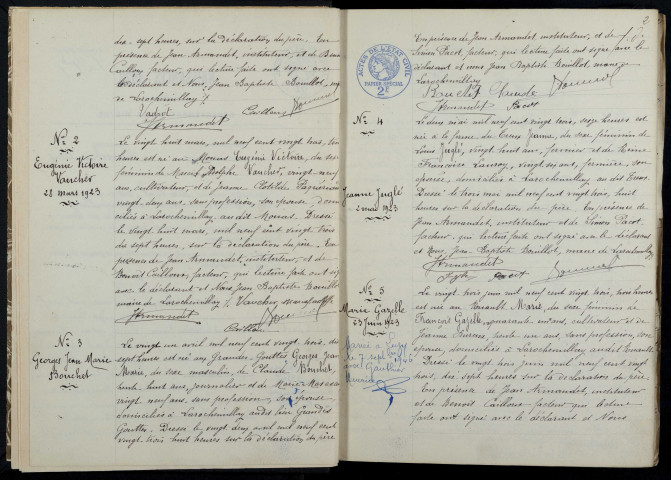 dix-sept heures, sur la déclaration du père. En
présence de Jean Armandet, instituteur, et de Benoit
Cailloux facteur, que lecture faite ont signé avec
le déclarant et Nous, Jean Baptiste Bouillot, maire
de Larochemillay
Armandet
No 2
Eugénie Victoire
Vaucher
28 mars 1923
Le vingt huit mars, mil neuf cent vingt trois,
heures est né au Mouas Eugénie Victoire, du sexe
féminin de Marcel Adolphe Vaucher, vingt-neuf
ans, cultivateur, et de Jeanne Clotilde
vingt deux ans, sans profession, son épouse, domi-
ciliés à Larochemillay, au dit Mouas. Dressé
le vingt huit mars, mil neuf cent vingt trois
dix sept heures, sur la déclaration du père. En
présence de Jean Armandet, instituteur, et de
Benoit Cailloux, facteur, qui lecture faite ont signé
avec le déclarant et Nous Jean Baptiste Bouillot
maire de Larochemillay. Vaucher
Armandet
No 3
Georges Jean Marie
Bouchet
Le vingt un avril mil neuf cent vingt trois, dix
sept heures est né aux Grandes Gouttes Georges Jean
Marie, du sexe masculin, de Claude Bouchet,
trente huit ans, journalier et de Marie
vingt neuf ans, sans profession, son épouse
domiciliés à Larochemillay au dit lieu Grandes
Gouttes. Dressé le vingt deux avril mil neuf cent
vingt trois huit heures sur la déclaration du père
2
En présence de Jean Armandet, instituteur, et de
Simon Pacot, facteur, qui lecture faite ont signé avec le
déclarant et nous Jean Baptiste Bouillot, maire de
Larochemillay
Bouchet Claude
Armandet Pacot
ACTES DE L'ÉTAT CIVIL
PAPIER SPÉCIAL
2F
No 4
Jeanne Juglé
2 mai 1923
Le deux mai mil neuf cent vingt trois, seize heures est
née à la ferme du Creux Jeanne, du sexe féminin de
Louis Juglé, vingt huit ans, fermier, et de Reine
Françoise Lauroy, vingt sept ans, fermière, son
épouse, domiciliés à Larochemillay au dit Creux.
Dressé le trois mai mil neuf cent vingt trois, huit
heures sur la déclaration du père. En présence de
Jean Armandet, instituteur et de Simon Pacot,
facteur, qui lecture faite ont signé avec le déclarant
et Nous, Jean Baptiste Bouillot, maire de Larochemillay
Armandet
Juglé Pacot
No 5
Marie Gazelle
23 Juin 1923
Le vingt trois juin mil neuf cent vingt trois, trois heures
est née au Touault, Marie, du sexe féminin de
François Gazelle, quarante un ans, cultivateur et de
Jeanne Bureau, trente un ans, sans profession, son
épouse, domiciliés à Larochemillay au dit Touault.
Dressé le vingt trois juin mil neuf cent vingt
trois, dix sept heures sur la déclaration du père.
En présence de Jean Armandet, instituteur
et de Benoit Cailloux facteur qui lecture
faite ont signé avec le déclarant et Nous